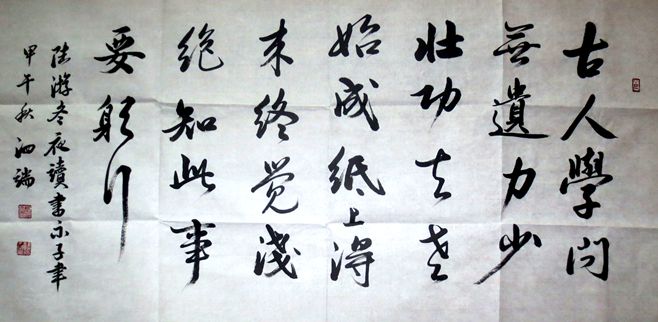 古人學问
無遺力少
壮功夫老
始成紙上得
来終覺淺
絶知此事
要躬行
陸游冬夜讀書示子聿
甲午秋